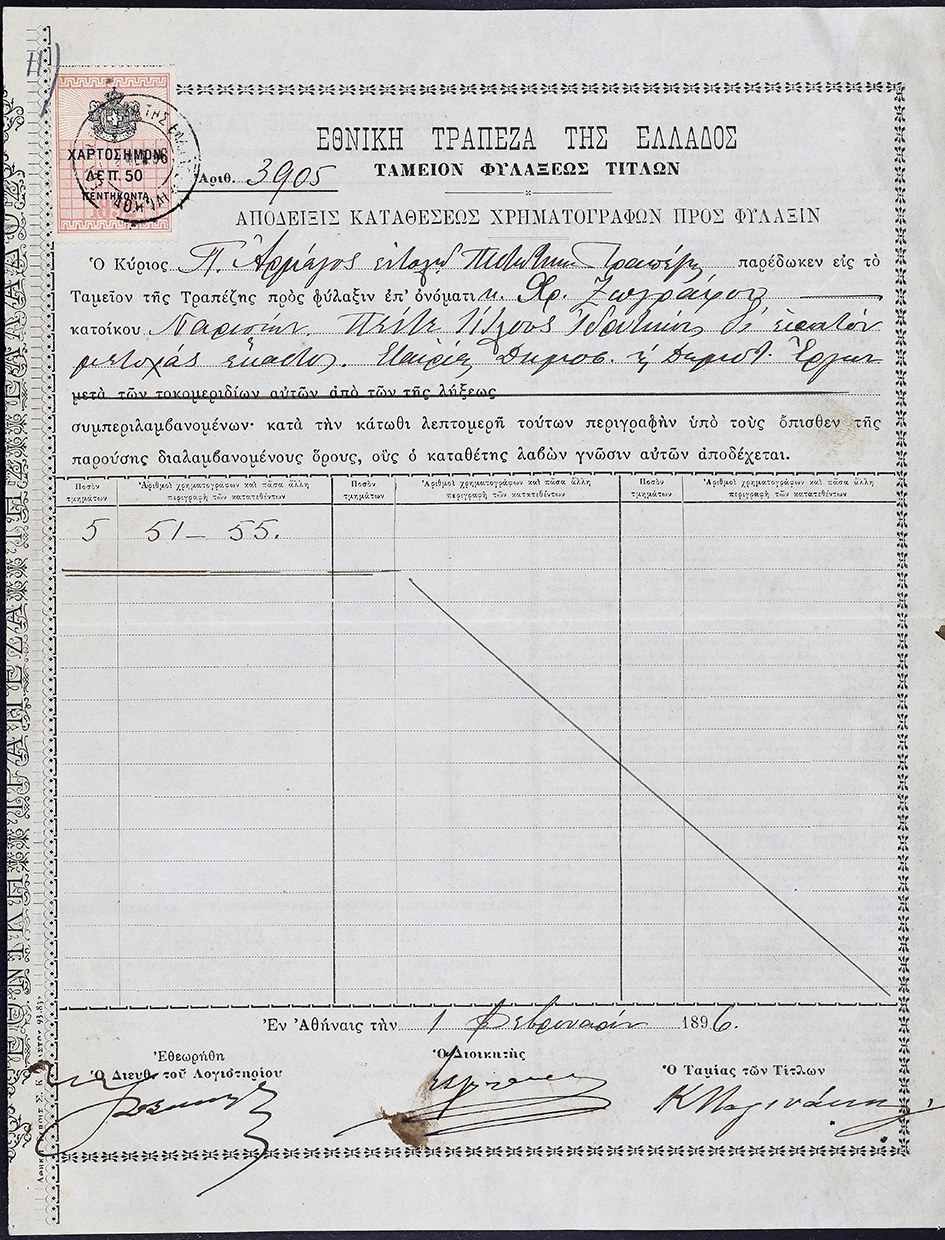 ΧΑΡΤΟΣΗΜΟΝ
ΛΕΠ. 50
ΠΕΝΤΗΚΟΝΤΑ
ΕΘΝΙΚΗ ΤΡΑΠΕΖΑ ΤΗΣ ΕΛΛΑΔΟΣ
ΤΑΜΕΙΟΝ ΦΥΛΑΞΕΩΣ ΤΙΤΛΩΝ
Ἀριθ. 3905
ΑΠΟΔΕΙΞΙΣ ΚΑΤΑΘΕΣΕΩΣ ΧΡΗΜΑΤΟΓΡΑΦΩΝ ΠΡΟΣ ΦΥΛΑΞΙΝ
Ὁ Κύριος Π. παρέδωκεν εἰς τὸ
Ταμεῖον τῆς Τραπέζης πρὸς φύλαξιν ἐπ' ὀνόματι κ. Χρ. Ζωγράφου
κατοίκου Παρισίων. Πέντε τίτλους δι' ἑκατὸν
μετοχὰς ἕκαστο. Ἑταιρίας Δημοσ. ἢ Δημοτ. Ἔργων
μετὰ τῶν τοκομεριδίων αὐτῶν ἀπὸ τῶν τῆς λήξεως
συμπεριλαμβανομένων· κατὰ τὴν κάτωθι λεπτομερῆ τούτων περιγραφὴν ὑπὸ τοὺς ὄπισθεν τῆς
παρούσης διαλαμβανομένους ὅρους, οὓς ὁ καταθέτης λαβὼν γνῶσιν αὐτῶν ἀποδέχεται.
Ποσὸν τμημάτων Ἀριθμοὶ χρηματογράφων καὶ πᾶσα ἄλλη περιγραφὴ τῶν κατατεθέντων Ποσὸν τμημάτων Ἀριθμοὶ χρηματογράφων καὶ πᾶσα ἄλλη περιγραφὴ τῶν κατατεθέντων Ποσὸν τμημάτων Ἀριθμοὶ χρηματογράφων καὶ πᾶσα ἄλλη περιγραφὴ τῶν κατατεθέντων
5 51 – 55.
Ἐν Ἀθήναις τὴν 1 Φεβρουαρίου 1896.
Ἐθεωρήθη
Ὁ Διευθ. τοῦ Λογιστηρίου
Ὁ Διοικητὴς
Ὁ Ταμίας τῶν Τίτλων